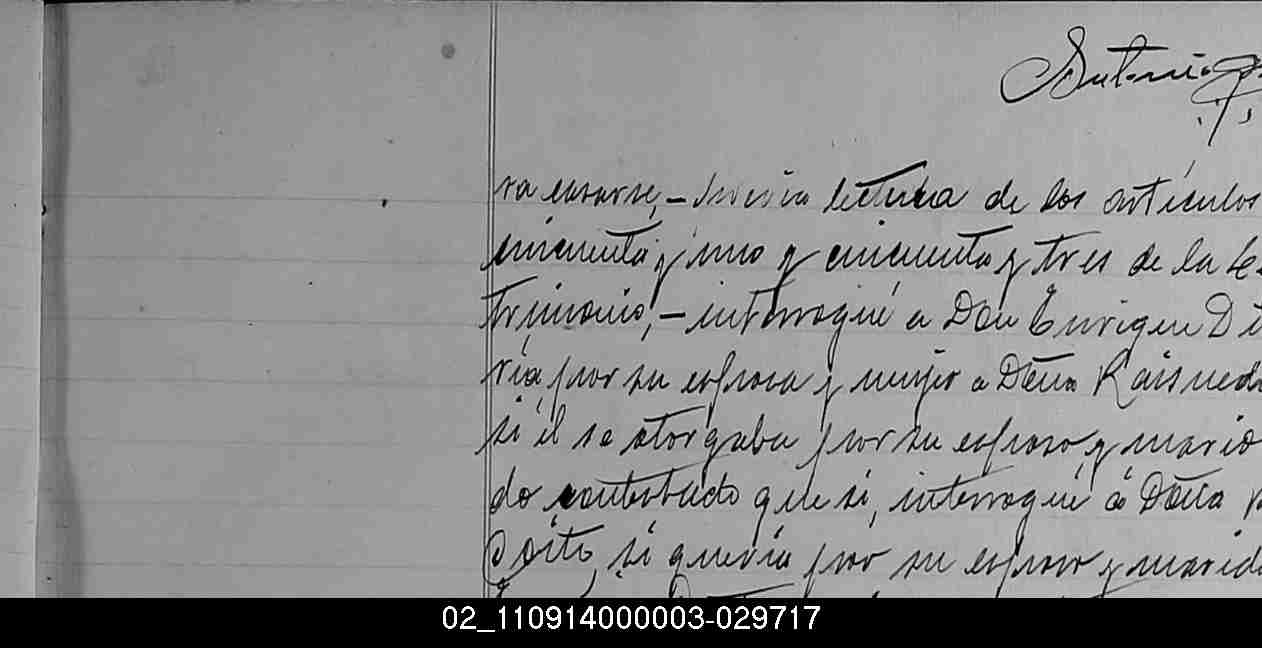 Antonio
ra casarse, – previa lectura de los artículos
cincuenta y uno y cincuenta y tres de la Le
trimonio, – interrogué a Don Enrique D
ría por su esposa y mujer a Doña
si él se otorgaba por su esposo y mario
do contestado que si, interrogué á Doña
si quería por su esposo y marido
02_110914000003-029717